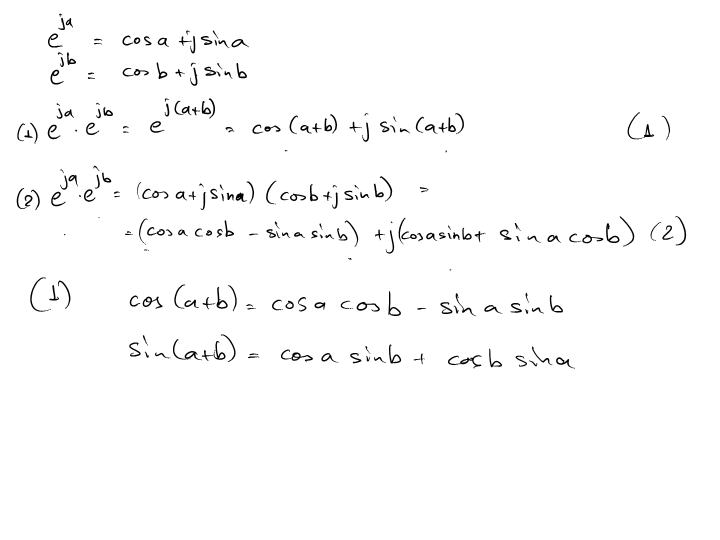 e^{ja} = cos a + j sin a
e^{jb} = cos b + j sin b
(1) e^{ja} · e^{jb} = e^{j(a+b)} = cos (a+b) + j sin (a+b) (1)
(2) e^{ja} · e^{jb} = (cos a + j sin a) (cos b + j sin b) =
= (cos a cos b - sin a sin b) + j (cos a sin b + sin a cos b) (2)
(1) cos (a+b) = cos a cos b - sin a sin b
sin (a+b) = cos a sin b + cos b sin a